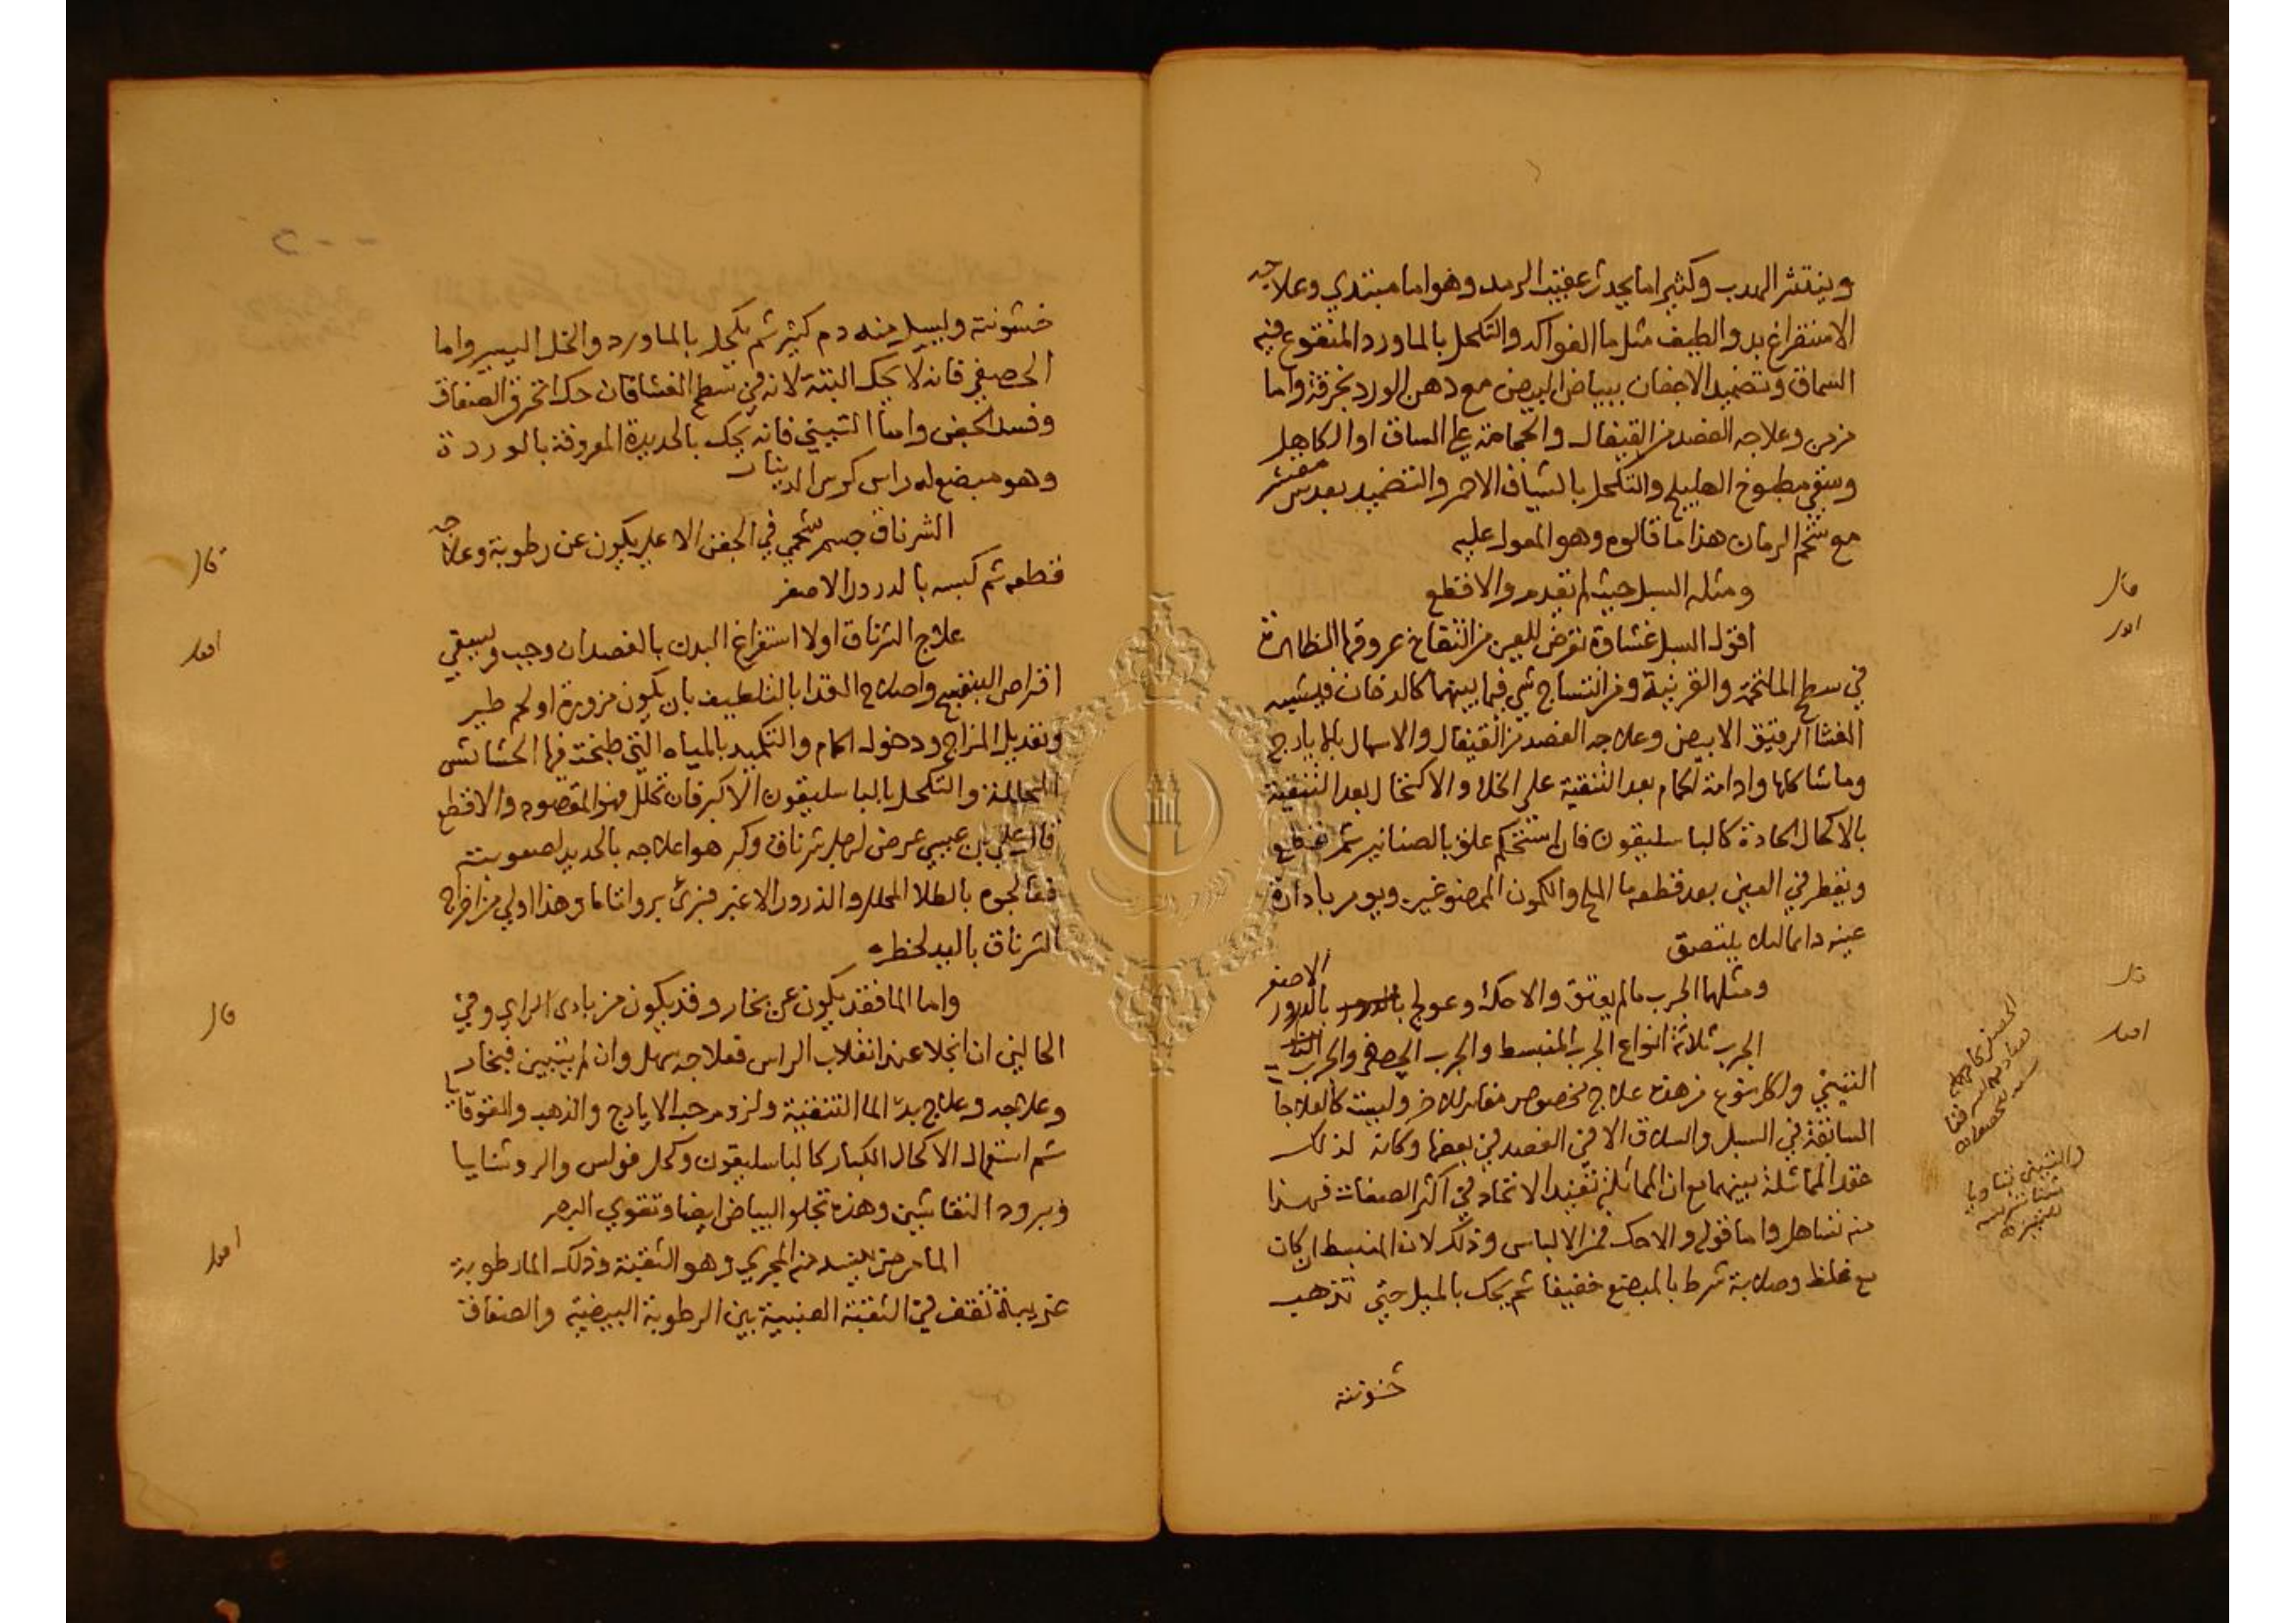 وينتثر الهدب وكثيرا ما يحدث عقيب الرمد وهو اما مبتدي وعلاجه
الاستفراغ بدوا لطيف مثل ما الفواكه والتكحل بالماورد المنقوع فيه
السماق وتضميد الاجفان ببياض البيض مع دهن الورد بخرقة واما
مزمن وعلاجه الفصد من القيفال والحجامة علي الساق او الكاهل
وسقي مطبوخ الهليلج والتكحل بالشياف الاحمر والتضميد بعدس مقشر
مع شحم الرمان هذا ما قالوه وهو المعول عليه
قال
ومثله السبل حيث لم يقدم والا قطع
اقول
اقول السبل غشاوة تعرض للعين من انتفاخ عروقها الظاهرة
في سطح الملتحمة والقرنية ومن انتساج شي فيما بينهما كالدخان فيشبه
الغشا الرقيق الابيض وعلاجه الفصد من القيفال والاسهال بالايارج
وما شاكلها وادامة الحمام بعد التنقية علي الخلا والاكتحال بعد التنقية
بالاكحال الحادة كالباسليقون فان استحكم علق بالصنانير ثم قطع
ويقطر في العين بعد قطعه ما الملح والكمون الممضوغين ويومر بادارة
عينه دايما ليلا يلتصق
قال
ومثلها الجرب ما لم يعتق والا حك وعولج بالذرور الاصفر
اقول
الجرب ثلاثة انواع الجرب المنبسط والجرب الحصفي والجرب
التيني ولكل نوع من هذه علاج مخصوص مغاير للاخر وليست كالعلاجا
السابقة في السبل والسلاق الا في الفصد في بعضها وكانه لذلك
عقد المماثلة بينهما مع ان المماثلة تفيد الاتحاد في اكثر الصفات فهذا
منه تساهل واما قوله والا حك فمن الالباس وذلك لان المنبسط ان كان
مع غلظ وصلابة شرط بالمبضع خفيفا ثم يحك بالميل حتي تذهب
خشونته
خشونته ويسيل منه دم كثير ثم يكحل بالماورد والخل اليسير واما
الحصفي فانه لا يحك البتة لانه في سطح الغشا فان حك انخرق الصفاق
وفسد الجفن واما التيني فانه يحك بالحديدة المعروفة بالوردة
وهو مبضع له راس كراس الدينار
قال
الشرناق جسم شحمي في الجفن الاعلي يكون عن رطوبة وعلاجه
قطعه ثم كبسه بالذرور الاصفر
اقول
علاج الشرناق اولا استفراغ البدن بالفصد ان وجب ويسقي
اقراص البنفسج واصلاح الغذا بالتلطيف بان يكون مزورة او لحم طير
وتعديل المزاج ودخول الحمام والتكميد بالمياه التي طبخت فيها الحشائش
المحللة والتكحل بالباسليقون الاكبر فان تحلل فهو المقصود والا قطع
قال علي بن عيسي عرض لرجل شرناق وكرهوا علاجه بالحديد لصعوبته
فعالجوه بالطلا المحلل والذرور الاغبر فبري بروا تاما وهذا اولي من اخراج
الشرناق باليد لخطره
قال
واما الما فقد يكون عن بخار وقد يكون من بادي الراي وفي
الحالين ان انجلا عند انقلاب الراس فعلاجه سهل وان لم يتبين فبخار
وعلاجه وعلاج بدء الما التنقية ولزوم حب الايارج والذهب والقوقايا
ثم استعمال الاكحال الكبار كالباسليقون وكحل فولس والروشنايا
وبرود النقاشين وهذه تجلو البياض ايضا وتقوي البصر
اقول
الما مرض يفسد منه المجري وهو الثقبة وذلك الما رطوبة
غريبة تقف في الثقبة العنبية بين الرطوبة البيضية والصفاق